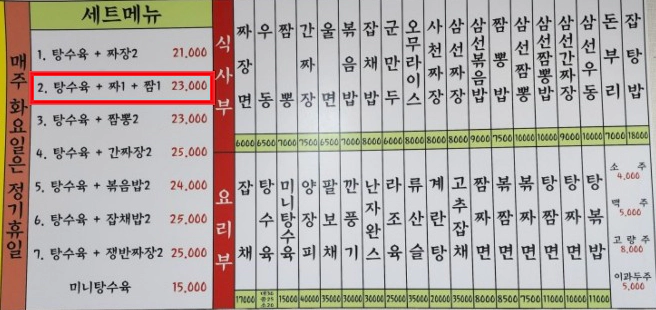 매주 화요일은 정기휴일
세트메뉴
1. 탕수육 + 짜장2 21,000
2. 탕수육 + 짜1 + 짬1 23,000
3. 탕수육 + 짬뽕2 23,000
4. 탕수육 + 간짜장2 25,000
5. 탕수육 + 볶음밥2 24,000
6. 탕수육 + 잡채밥2 25,000
7. 탕수육 + 쟁반짜장2 25,000
미니탕수육 15,000
식사부
짜장면 6000
우동 6500
짬뽕 7000
간짜장 7500
울면 6500
볶음밥 7000
잡채밥 8000
군만두 6000
오무라이스 8000
사천짜장 8000
삼선짜장 8000
삼선볶음밥 9000
짬뽕밥 7500
삼선짬뽕 10000
삼선짬뽕밥 10000
삼선간짜장 10000
삼선우동 10000
돈부리 7000
잡탕밥 18000
요리부
잡채 17000
탕수육
미니탕수육 15000
양장피 40000
팔보채 35000
깐풍기 30000
난자완스 30000
라조육
류산슬 35000
계란탕 20000
고추잡채 35000
짬짜면 8000
볶짜면 8500
볶짬면
탕짜면
탕짬면 10000
탕볶밥 11000
소주 4,000
맥주 5,000
고량주 8,000
이과두주 5,000